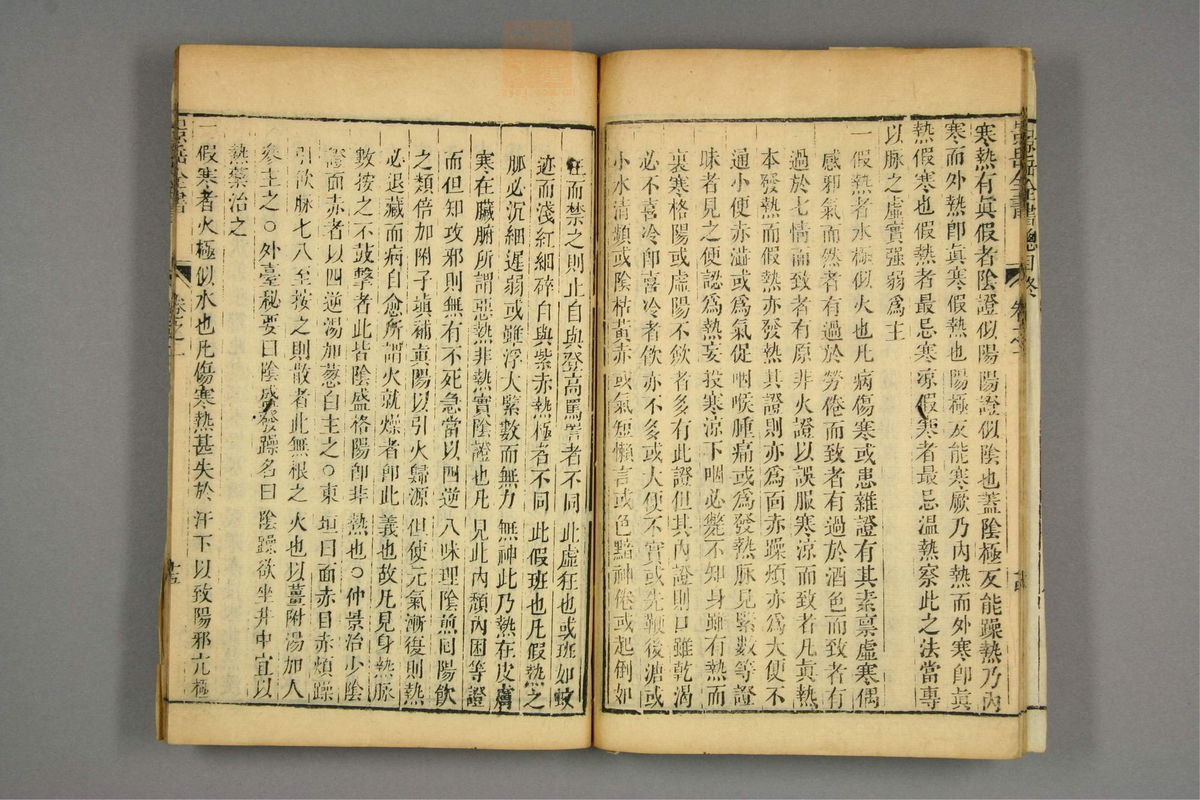 寒熱有眞假者陰證似陽陽證似陰也蓋陰極反能躁熱乃內
寒而外熱卽眞寒假熱也陽極反能寒厥乃內熱而外寒卽眞
熱假寒也假熱者最忌寒凉假寒者最忌温熱察此之法當專
以脉之虛實强弱爲主
一假熱者水極似火也凡病傷寒或患雜證有其素禀虛寒偶
感邪氣而然者有過於勞倦而致者有過於酒色而致者有
過於七情而致者有原非火證以誤服寒凉而致者凡眞熱
本發熱而假熱亦發熱其證則亦爲面赤躁煩亦爲大便不
通小便赤澁或爲氣促咽喉腫痛或爲發熱脉見緊數等證
昧者見之便認爲熱妄投寒凉下咽必斃不知身雖有熱而
裏寒格陽或虛陽不斂者多有此證但其內證則口雖乾渴
必不喜冷卽喜冷者飲亦不多或大便不實或先鞕後溏或
小水清頻或陰枯黃赤或氣短懶言或色黯神倦或起倒如
狂而禁之則止自與登高罵詈者不同此虛狂也或班如蚊
迹而淺紅細碎自與紫赤熱極者不同此假班也凡假熱之
脉必沉細遲弱或雖浮大緊數而無力無神此乃熱在皮膚
寒在臟腑所謂惡熱非熱實陰證也凡見此內頹內困等證
而但知攻邪則無有不死急當以四逆八味理陰煎回陽飲
之類倍加附子塡補眞陽以引火歸源但使元氣漸復則熱
必退藏而病自愈所謂火就燥者卽此義也故凡見身熱脉
數按之不鼓擊者此皆陰盛格陽卽非熱也○仲景治少陰
證面赤者以四逆湯加葱白主之○東垣曰面赤目赤煩躁
引飲脉七八至按之則散者此無根之火也以薑附湯加人
參主之○外臺秘要曰陰盛發躁名曰陰躁欲坐井中宜以
熱藥治之
一假寒者火極似水也凡傷寒熱甚失於汗下以致陽邪亢極
景岳全書 總目終 卷之一 十四
景岳全書 卷之一 十五